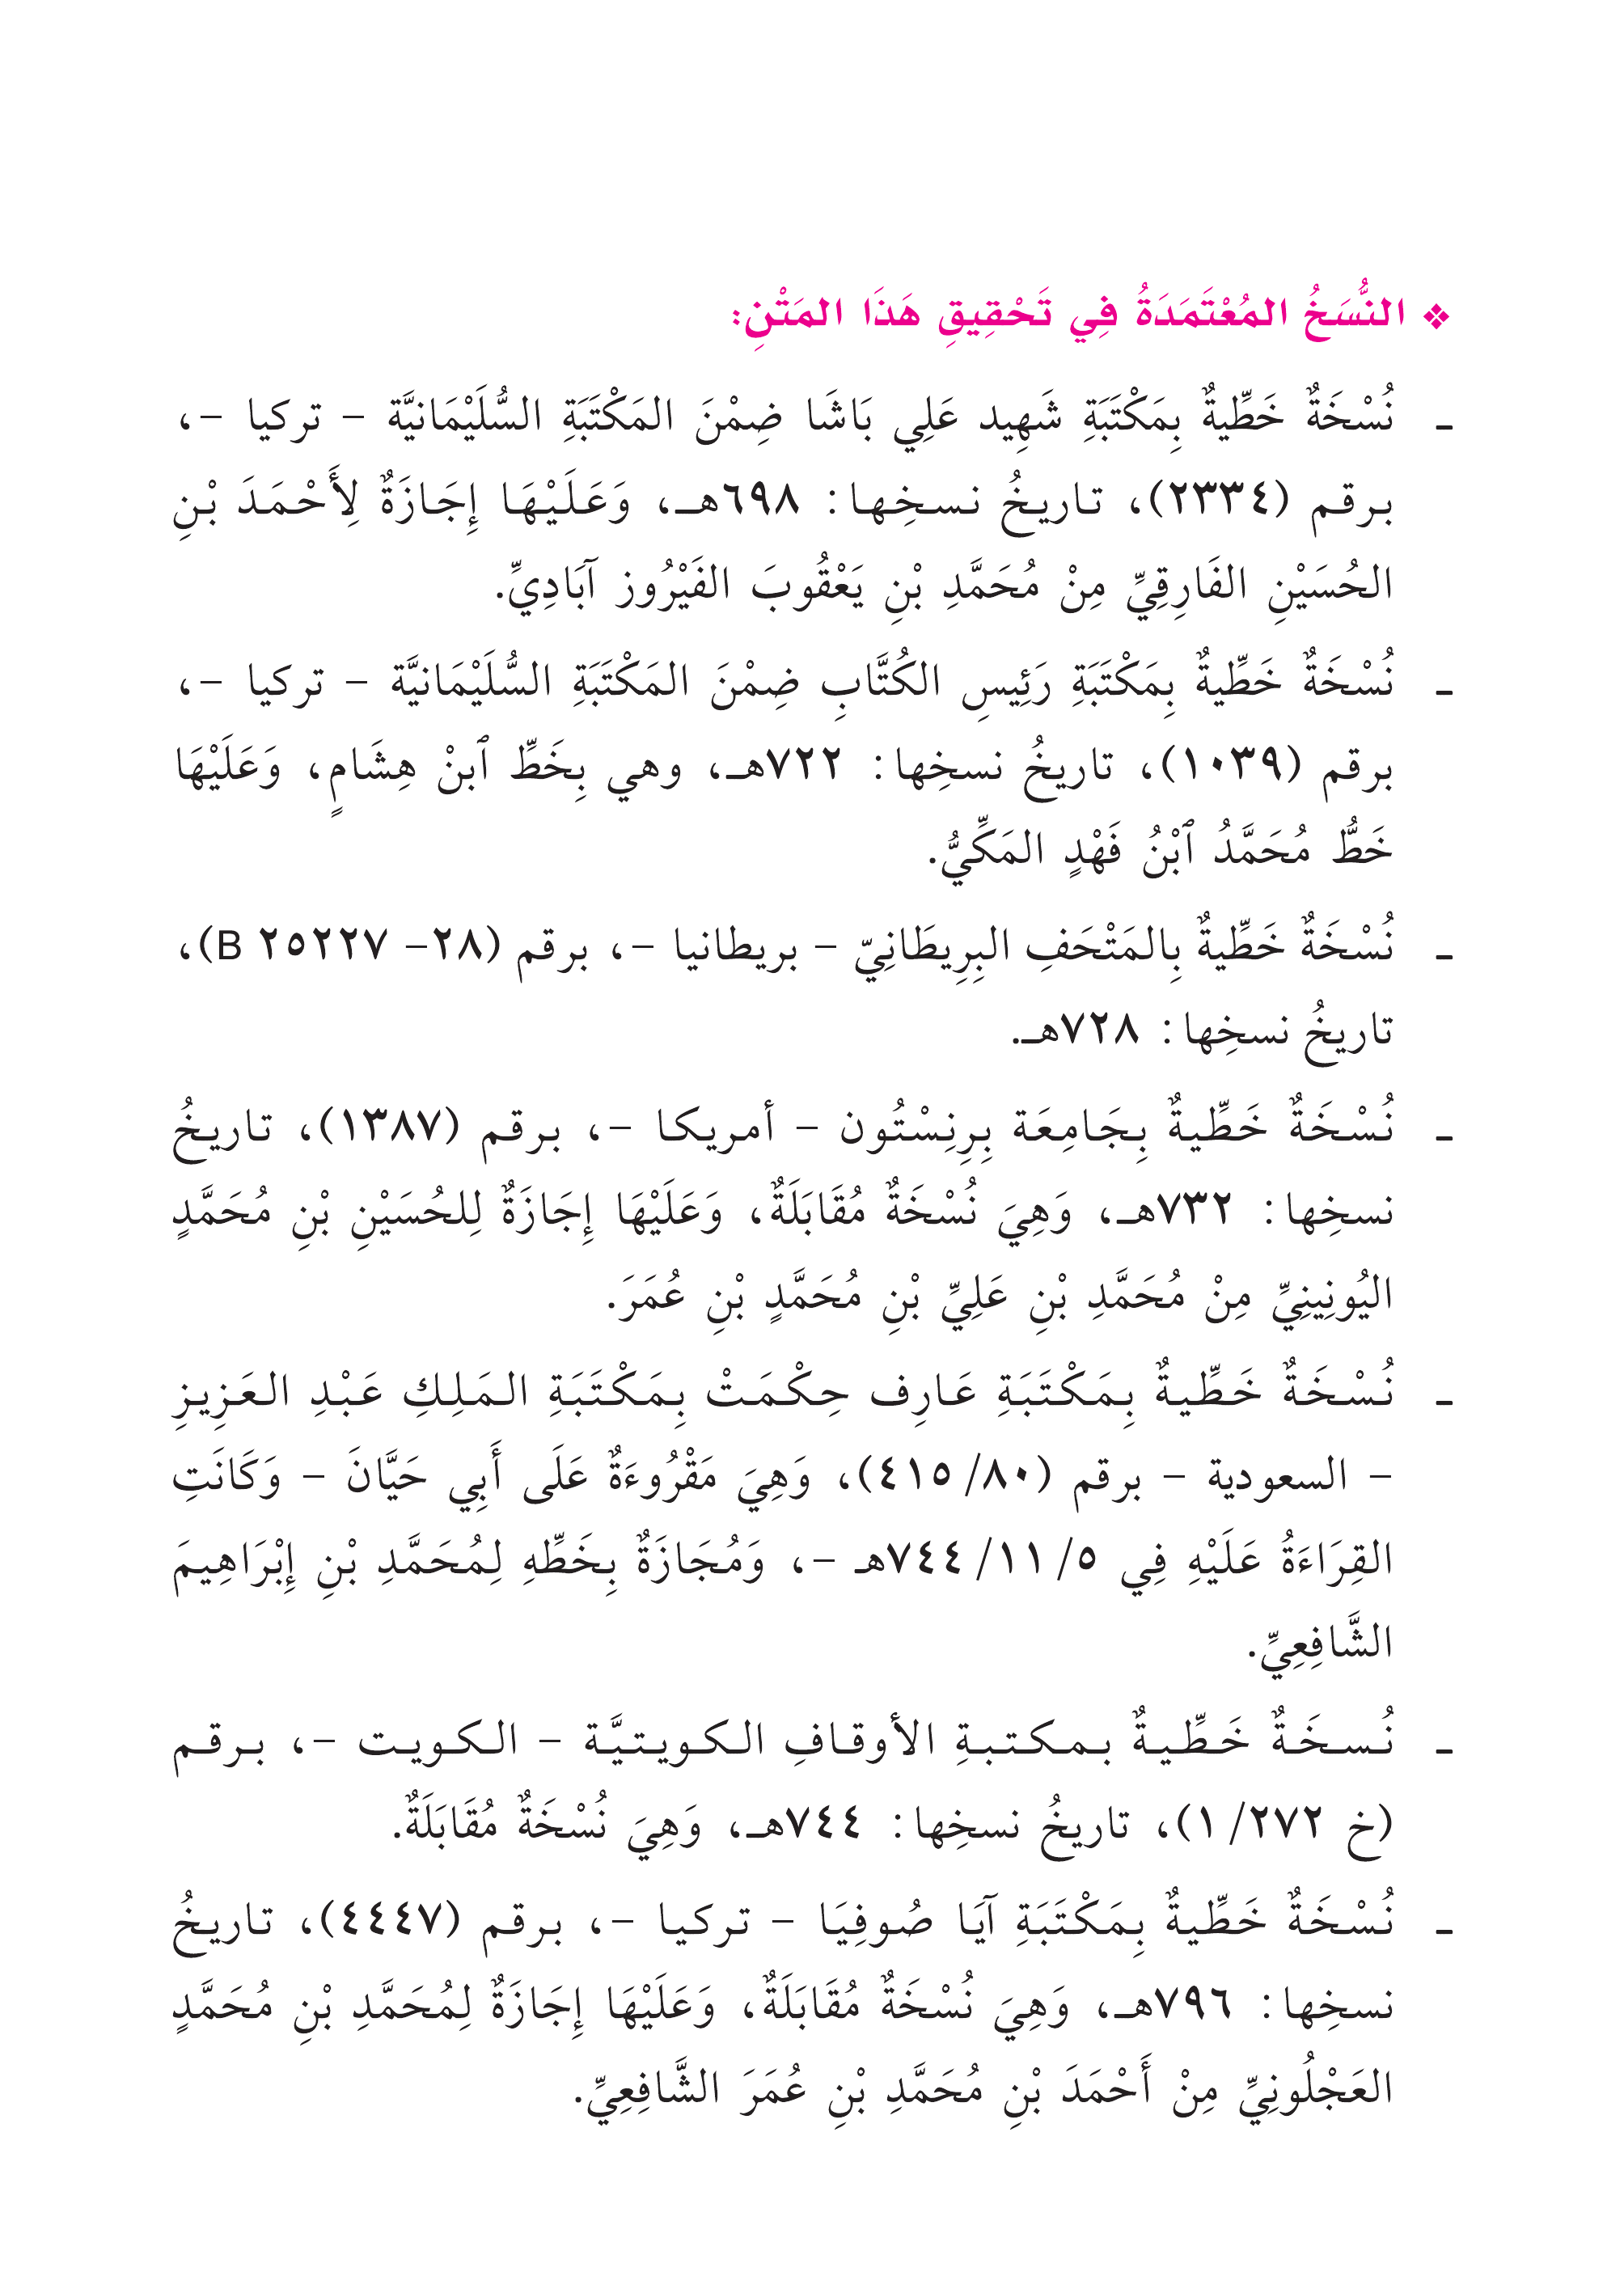 ❖ النُّسَخُ المُعْتَمَدَةُ فِي تَحْقِيقِ هَذَا المَتْنِ:
ـ نُسْخَةٌ خَطِّيةٌ بِمَكْتَبَةِ شَهِيد عَلِي بَاشَا ضِمْنَ المَكْتَبَةِ السُّلَيْمَانيَّة – تركيا –،
برقم (٢٣٣٤)، تاريخُ نسخِها: ٦٩٨هـ، وَعَلَيْهَا إِجَازَةٌ لِأَحْمَدَ بْنِ
الحُسَيْنِ الفَارِقِيِّ مِنْ مُحَمَّدِ بْنِ يَعْقُوبَ الفَيْرُوز آبَادِيِّ.
ـ نُسْخَةٌ خَطِّيةٌ بِمَكْتَبَةِ رَئِيسِ الكُتَّابِ ضِمْنَ المَكْتَبَةِ السُّلَيْمَانيَّة – تركيا –،
برقم (١٠٣٩)، تاريخُ نسخِها: ٧٢٢هـ، وهي بِخَطِّ ٱبنْ هِشَامٍ، وَعَلَيْهَا
خَطُّ مُحَمَّدُ ٱبْنُ فَهْدٍ المَكِّيُّ.
ـ نُسْخَةٌ خَطِّيةٌ بِالمَتْحَفِ البِرِيطَانِيّ – بريطانيا –، برقم (٢٨– ٢٥٢٢٧ B)،
تاريخُ نسخِها: ٧٢٨هـ.
ـ نُسْخَةٌ خَطِّيةٌ بِجَامِعَة بِرِنِسْتُون – أمريكا –، برقم (١٣٨٧)، تاريخُ
نسخِها: ٧٣٢هـ، وَهِيَ نُسْخَةٌ مُقَابَلَةٌ، وَعَلَيْهَا إِجَازَةٌ لِلحُسَيْنِ بْنِ مُحَمَّدٍ
اليُونِينِيِّ مِنْ مُحَمَّدِ بْنِ عَلِيِّ بْنِ مُحَمَّدٍ بْنِ عُمَرَ.
ـ نُسْخَةٌ خَطِّيةٌ بِمَكْتَبَةِ عَارِف حِكْمَتْ بِمَكْتَبَةِ المَلِكِ عَبْدِ العَزِيزِ
– السعودية – برقم (٤١٥/٨٠)، وَهِيَ مَقْرُوءَةٌ عَلَى أَبِي حَيَّانَ – وَكَانَتِ
القِرَاءَةُ عَلَيْهِ فِي ٧٤٤/١١/٥هـ –، وَمُجَازَةٌ بِخَطِّهِ لِمُحَمَّدِ بْنِ إِبْرَاهِيمَ
الشَّافِعِيِّ.
ـ نُسخَةٌ خَطِّيةٌ بمكتبةِ الأوقافِ الكويتيَّة – الكويت –، برقم
(خ ١/٢٧٢)، تاريخُ نسخِها: ٧٤٤هـ، وَهِيَ نُسْخَةٌ مُقَابَلَةٌ.
ـ نُسْخَةٌ خَطِّيةٌ بِمَكْتَبَةِ آيَا صُوفِيَا – تركيا –، برقم (٤٤٤٧)، تاريخُ
نسخِها: ٧٩٦هـ، وَهِيَ نُسْخَةٌ مُقَابَلَةٌ، وَعَلَيْهَا إِجَازَةٌ لِمُحَمَّدِ بْنِ مُحَمَّدٍ
العَجْلُونِيِّ مِنْ أَحْمَدَ بْنِ مُحَمَّدِ بْنِ عُمَرَ الشَّافِعِيِّ.